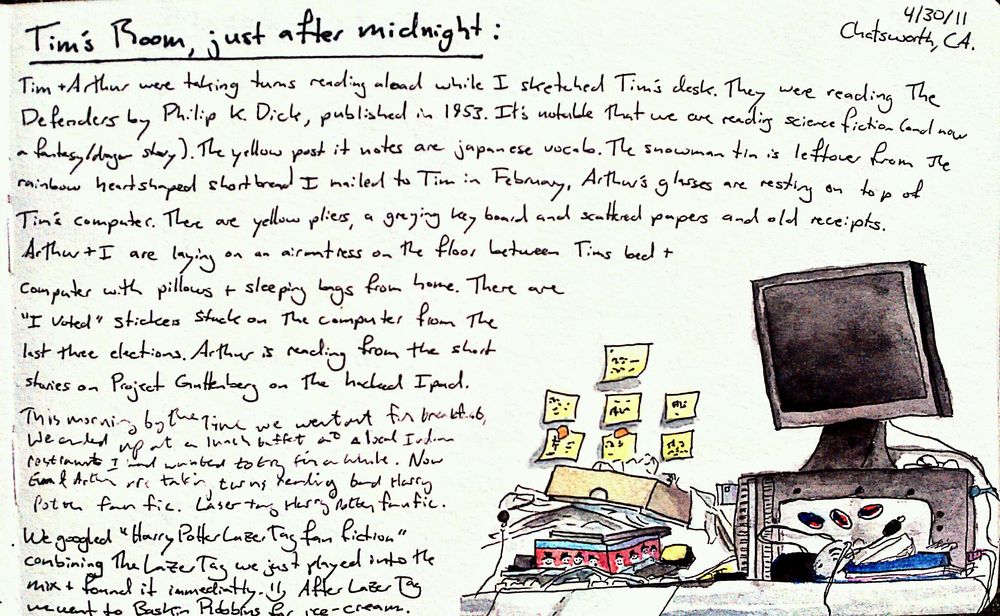 4/30/11
Chatsworth, CA.
Tim's Room, just after midnight:
Tim + Arthur were taking turns reading aloud while I sketched Tim's desk. They were reading The
Defenders by Philip K. Dick, published in 1953. It's notable that we are reading science fiction (and now
a fantasy/dragon story). The yellow post it notes are japanese vocab. The snowman tin is leftover from the
rainbow heartshaped shortbread I mailed to Tim in February, Arthur's glasses are resting on top of
Tim's computer. There are yellow pliers, a greying keyboard and scattered papers and old receipts.
Arthur + I are laying on an airmatress on the floor between Tims bed +
computer with pillows + sleeping bags from home. There are
"I Voted" stickers stuck on the computer from the
last three elections. Arthur is reading from the short
stories on Project Guttenberg on the hacked Ipad.
This morning by the time we went out for breakfast,
We ended up at a lunch buffet at a local Indian
restaurant I had wanted to try for a while. Now
& Arthur are takin turns reading bad Harry
Potter fan fic. Laser tag Harry Potter fanfic.
We googled "Harry Potter Lazer Tag fan fiction"
combining The Lazer Tag we just played into the
mix + found it immediatly. !! After Lazer Tag
we went to Baskin Robbins for ice-cream.